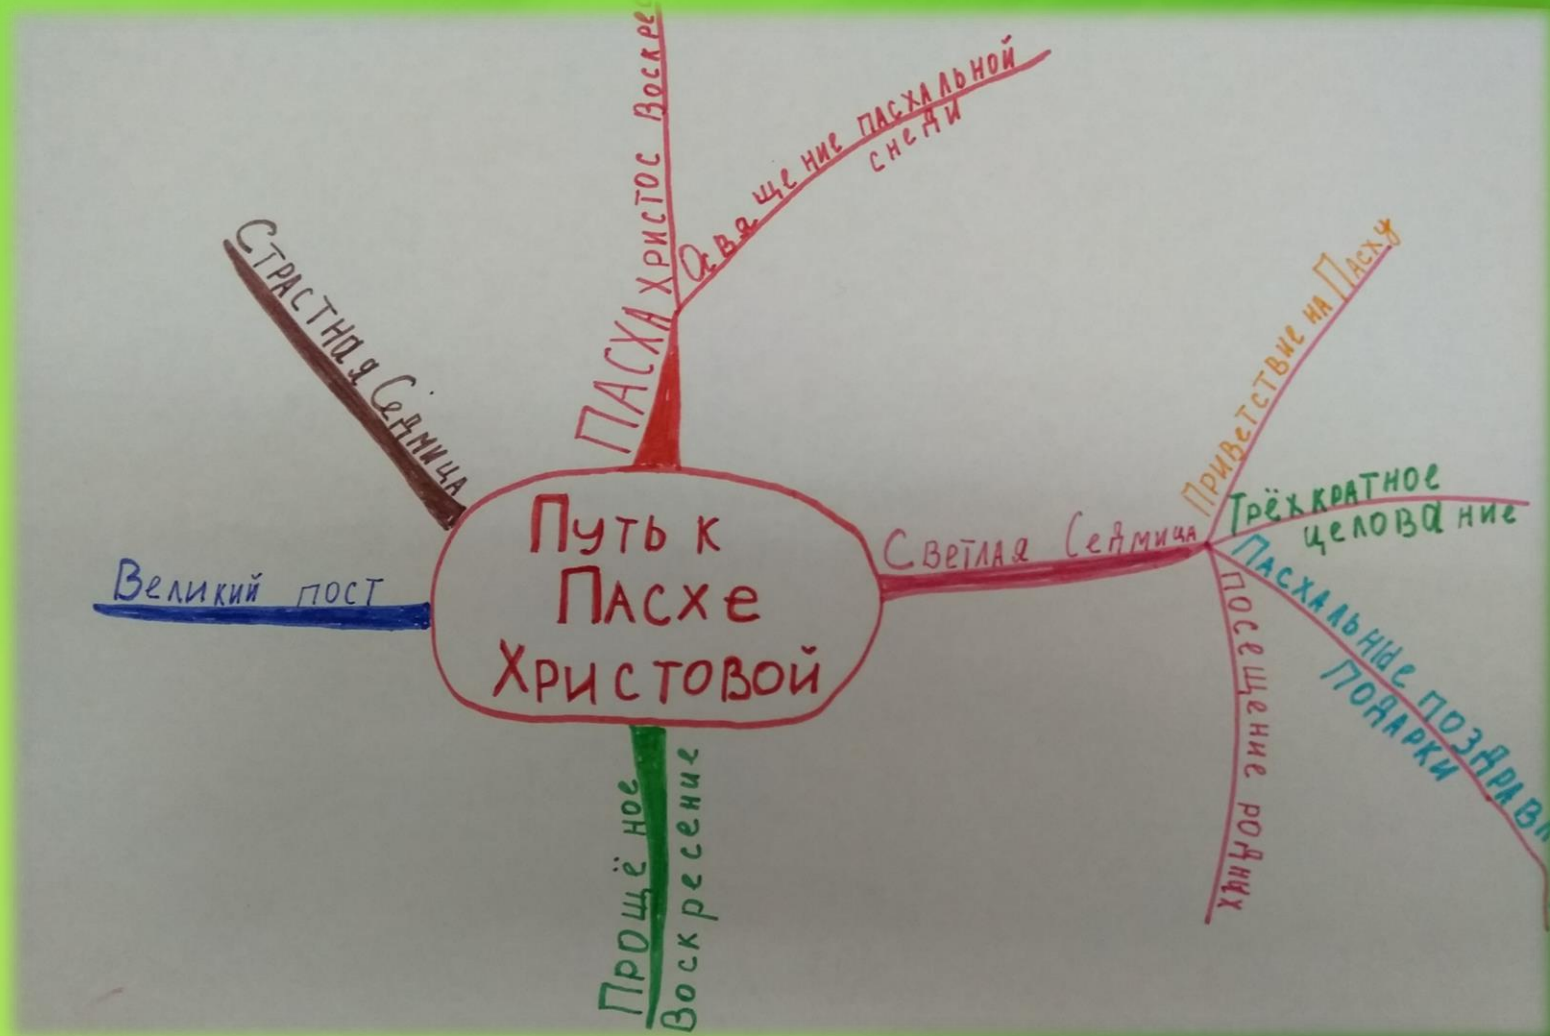 Путь к
Пасхе
Христовой
Прощёное
Воскресение
Великий пост
Страстная Седмица
ПАСХА
Христос Воскре
Освящение пасхальной
снеди
Светлая Седмица
Приветствие на Пасху
Трёхкратное
целование
Пасхальные поздравл
подарки
посещение родных